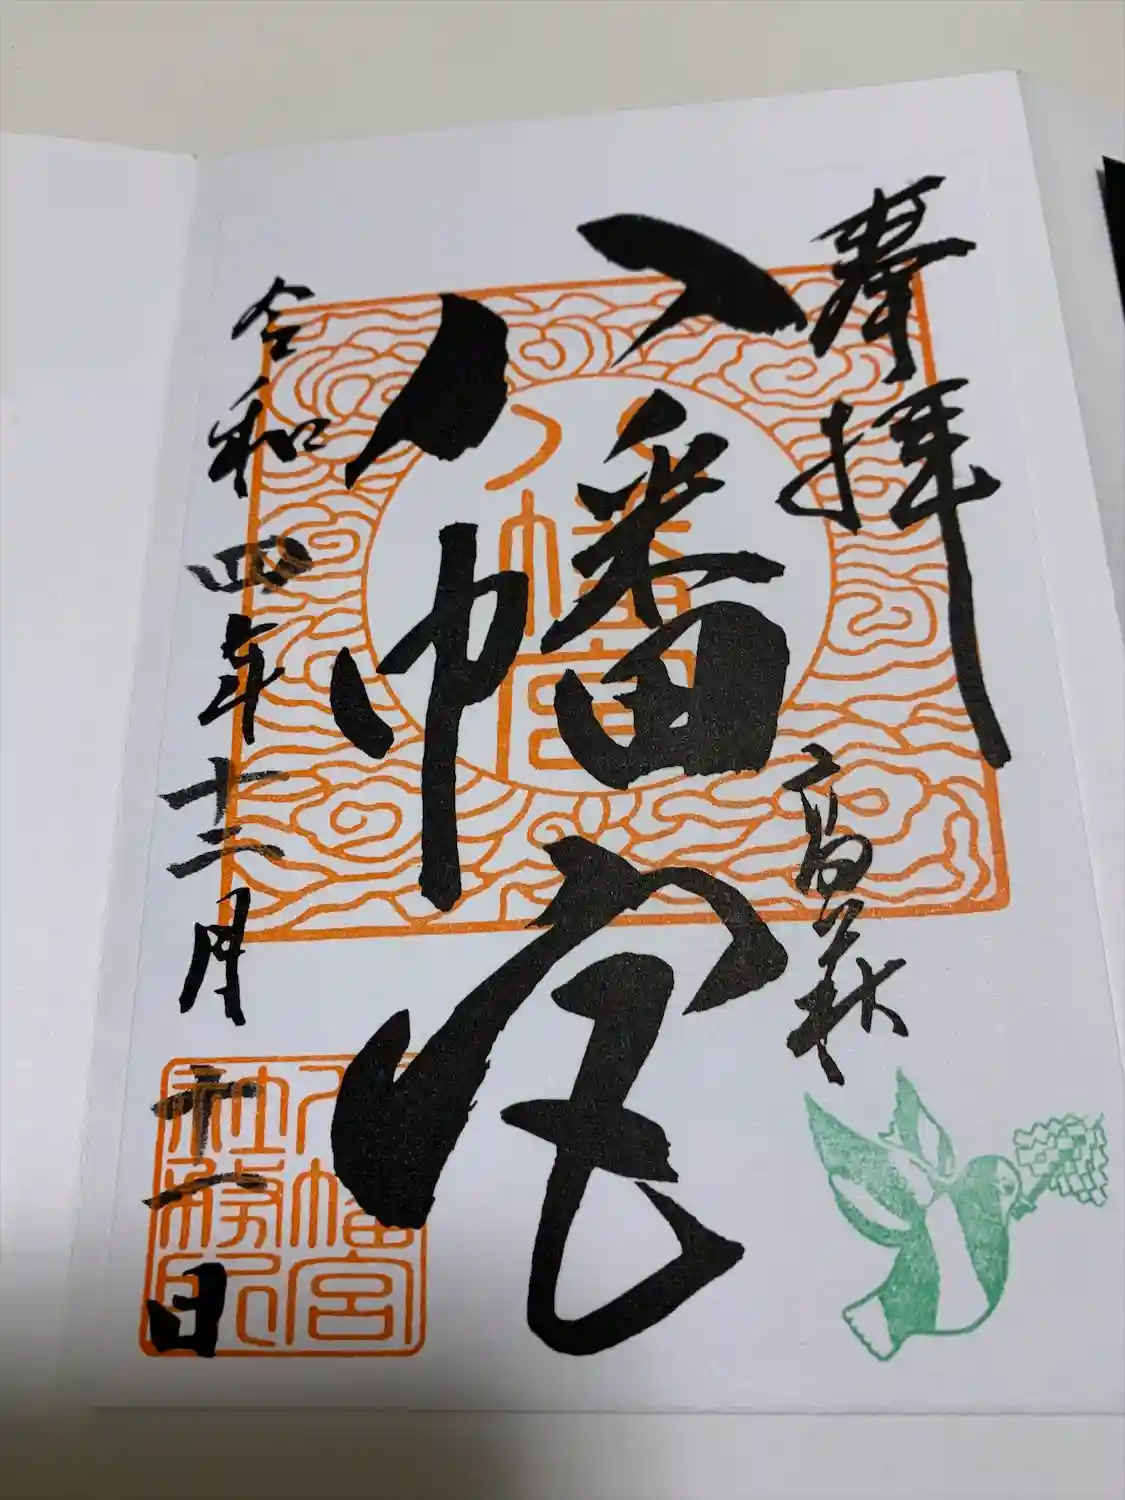 奉拝
高萩
八幡宮
八幡宮
令和四年十二月十一日
八幡宮
社務所印